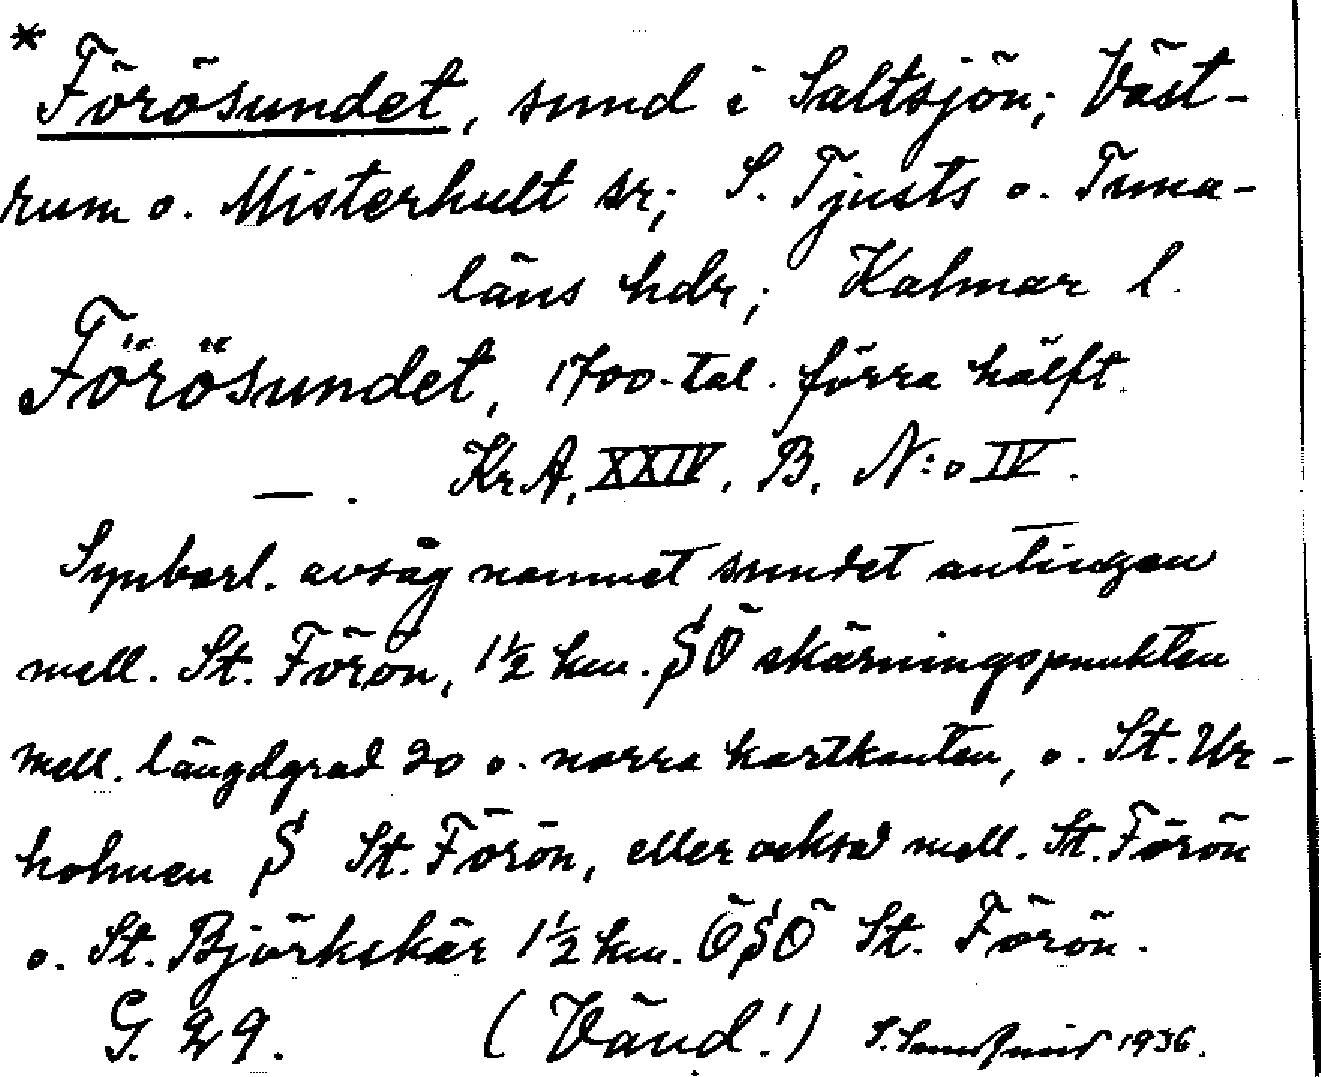 * Förösundet, sund i Saltsjön; Väst-
rum o. Misterhult sr; S. Tjusts o. Tuna-
läns hdr; Kalmar l.
Förösundet, 1700-tal. förra hälft.
— . Kr. A. XXIV. B. N:o IV.
Synbarl. avsåg namnet sundet antingen
mell. St. Förön, 1½ km. SÖ skärningspunkten
mell. längdgrad 20 o. norra kartkanten, o. St. Ur-
holmen S St. Förön, eller också mell. St. Förön
o. St. Björkskär 1½ km. ÖSÖ St. Förön.
G. 29. (Vänd!) 1936.